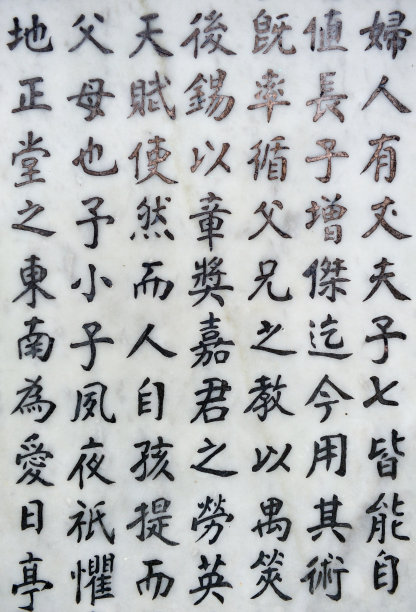 婦人有丈夫子七皆能自
值長子增傑迄今用其術
既率循父兄之教以禺筴
後錫以章獎嘉君之勞英
天賦使然而人自孩提而
父母也予小子夙夜祇懼
地正堂之東南為愛日亭